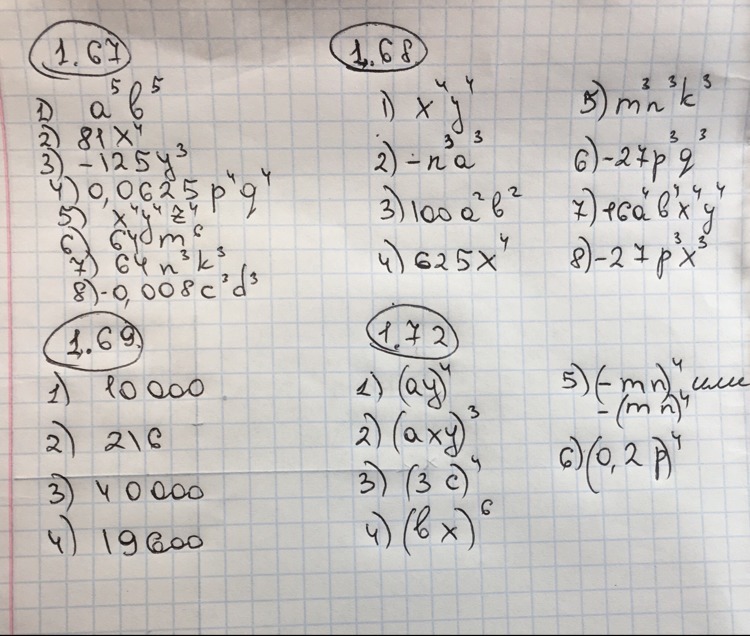 1.67
1) a⁵b⁵
2) 81x⁴
3) -125y³
4) 0,0625p⁴q⁴
5) x⁴y⁴z⁴
6) 64m⁶
7) 64n³k³
8) -0,008c³d³
1.68
1) x⁴y⁴
2) -n³a³
3) 100a²b²
4) 625x⁴
5) m³n³k³
6) -27p³q³
7) 16a⁴b⁴x⁴y⁴
8) -27p³x³
1.69
1) 10 000
2) 216
3) 40 000
4) 19600
1.72
1) (ay)⁴
2) (axy)³
3) (3c)⁴
4) (bx)⁶
5) (-mn)⁴ или
-(mn)⁴
6) (0,2p)⁴